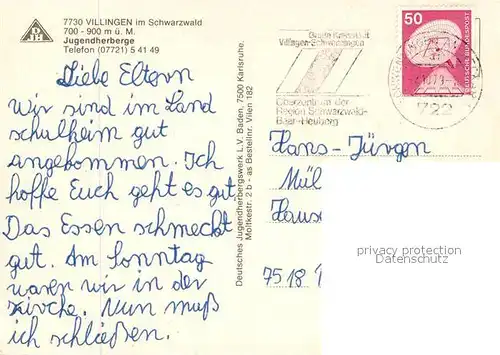 7730 VILLINGEN im Schwarzwald
700 - 900 m ü. M.
Jugendherberge
Telefon (07721) 5 41 49
DJH
Liebe Eltern
Wir sind im Land
schulheim gut
angekommen. Ich
hoffe Euch geht es gut
Das Essen schmeckt
gut. Am Sonntag
waren wir in der
Kirche. Nun muß
ich schließen.
Deutsches Jugendherbergswerk L.V. Baden, 7500 Karlsruhe.
Moltkestr. 2 b - as Bestellnr. Vilen 182
Villingen-Schwenningen
Oberzentrum der
Region Schwarzwald-
Baar-Heuberg
50
DEUTSCHE BUNDESPOST
722
Hans-Jürgen
Mül
Haus
7518
privacy protection
Datenschutz